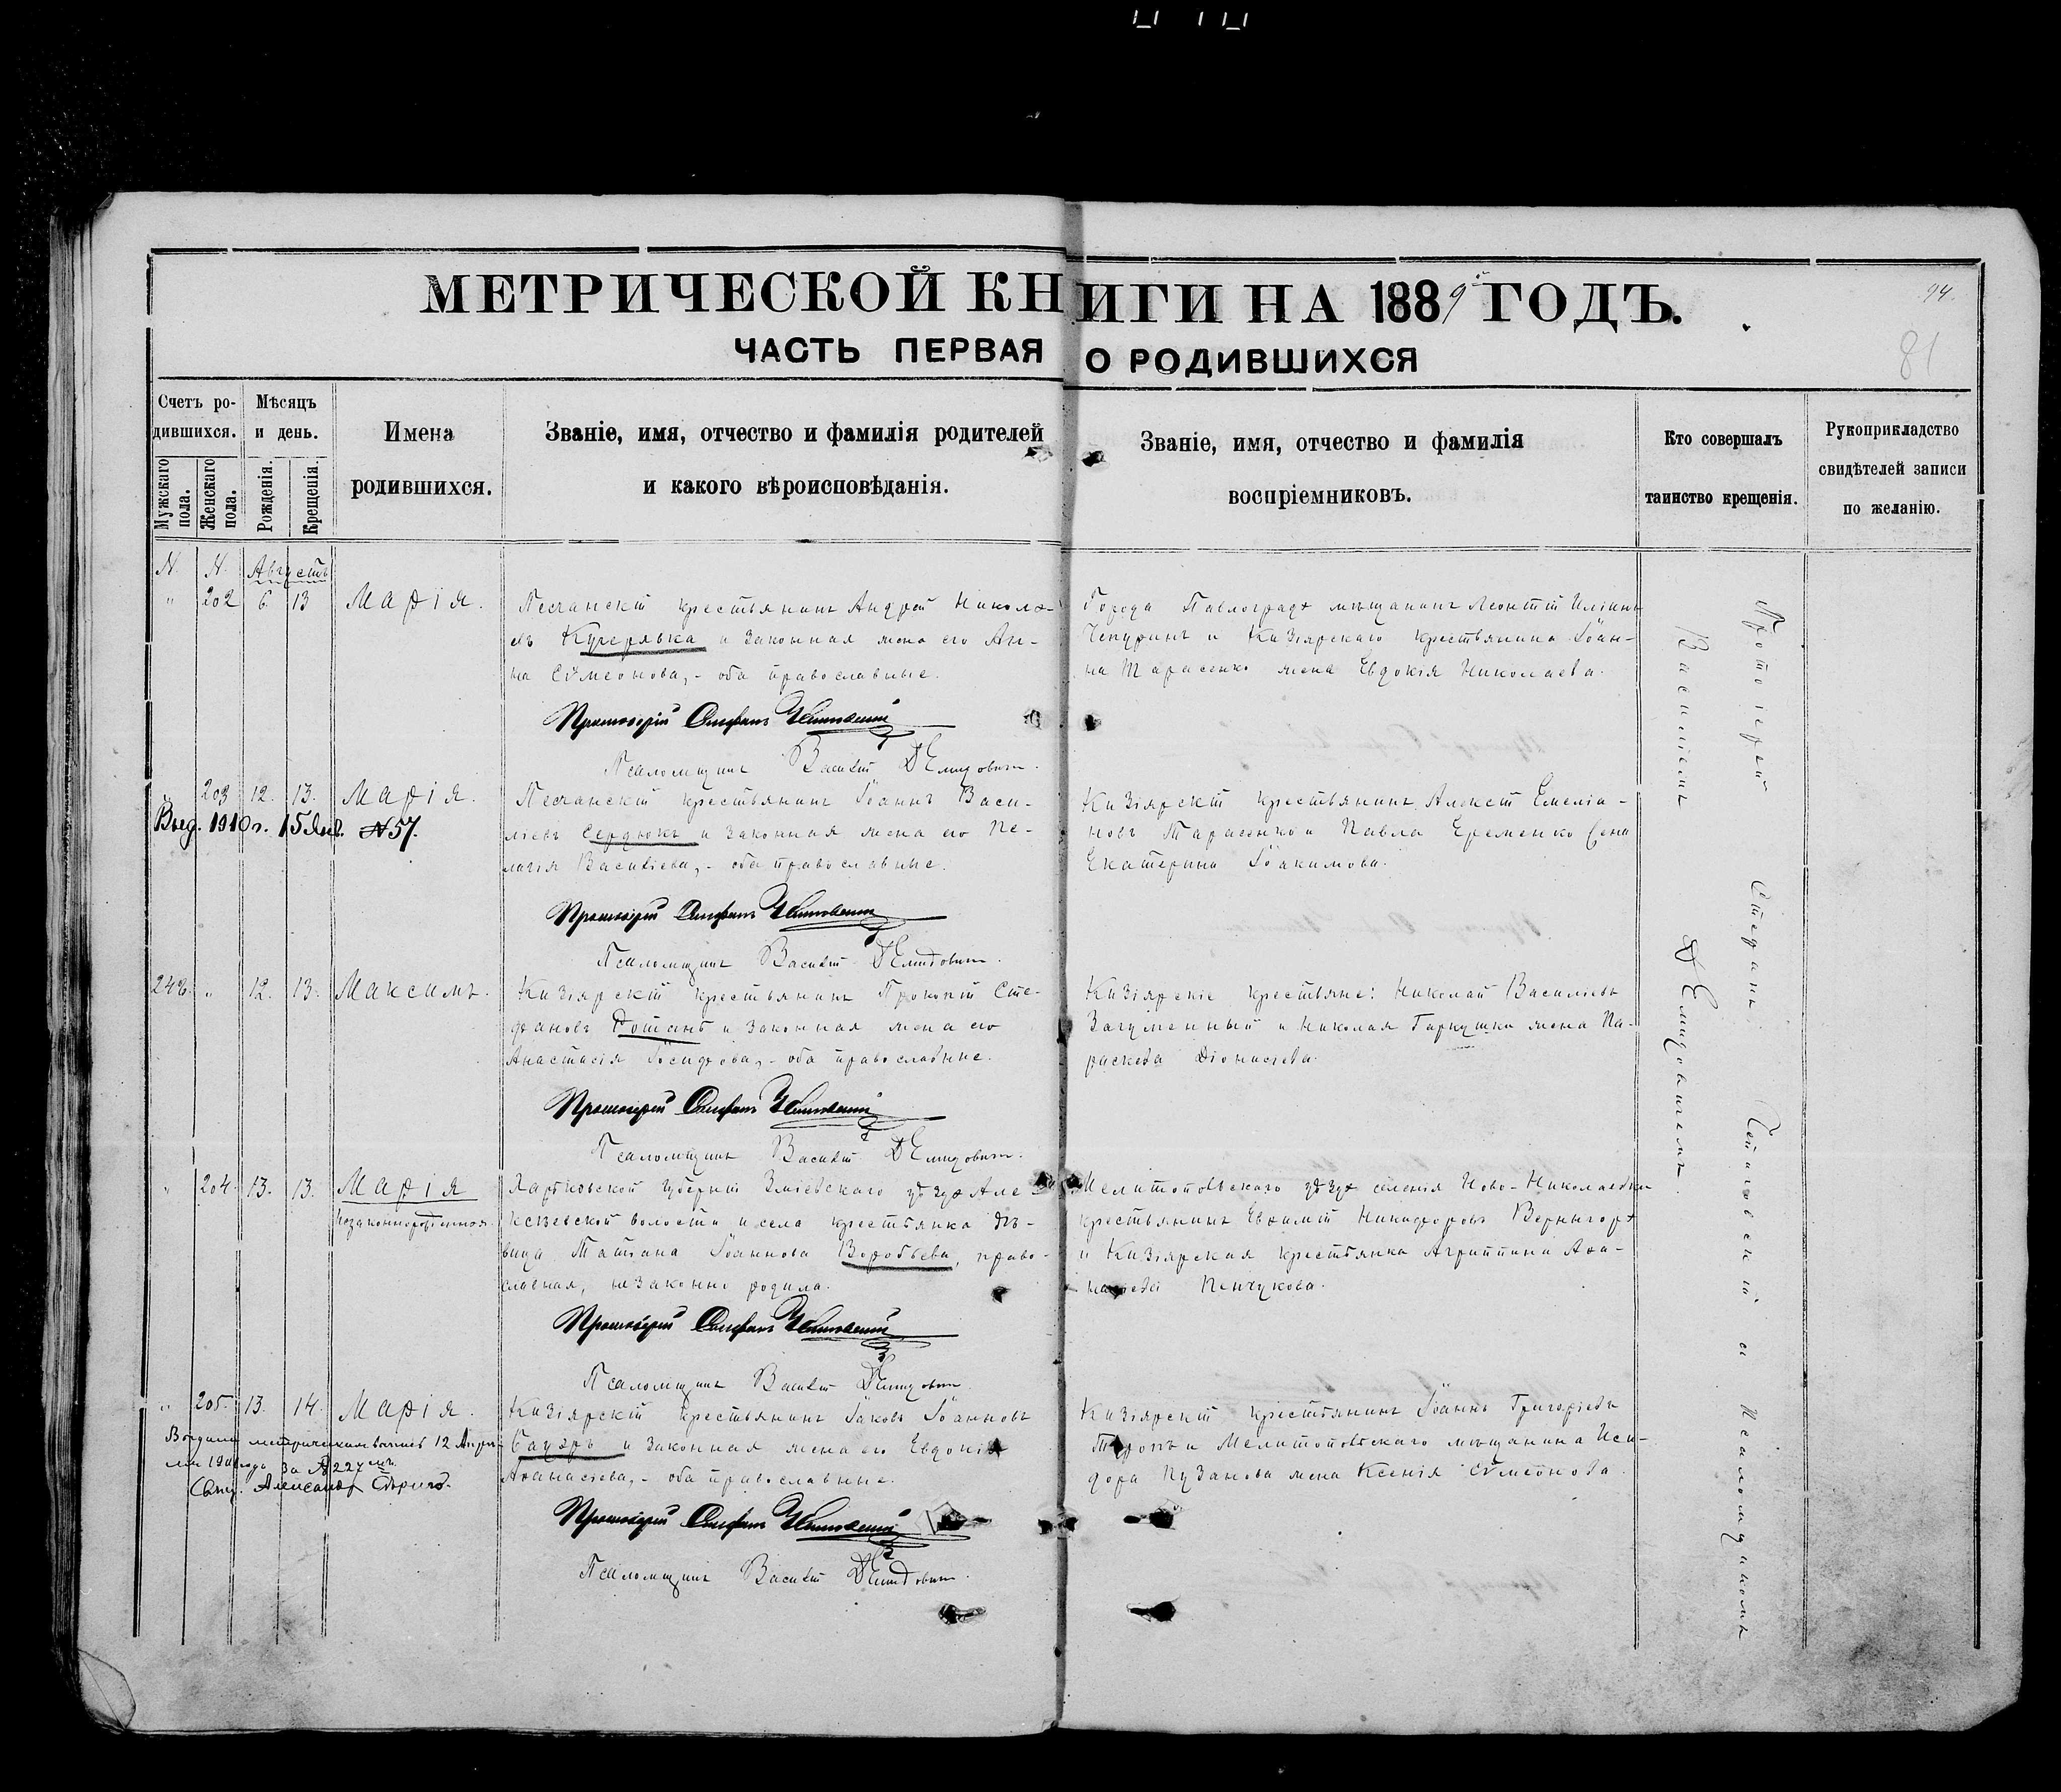 МЕТРИЧЕСКОЙ КНИГИ НА 1889й ГОДЪ.
94.
81
ЧАСТЬ ПЕРВАЯ О РОДИВШИХСЯ
Счетъ ро-
дившихся.
Мужскаго пола.
Женскаго пола.
Мѣсяцъ
и день.
Рожденія.
Крещенія.
Имена
родившихся.
Званіе, имя, отчество и фамилія родителей
и какого вѣроисповѣданія.
Званіе, имя, отчество и фамилія
воспріемниковъ.
Кто совершалъ
таинство крещенія.
Рукоприкладство
свидѣтелей записи
по желанію.
N. N. Августъ
" 202 6. 13 Марія.
Песчанскій крестьянинъ Андрей Никола-
евъ Кучерявка и законная жена его Ан-
на Сѵмеонова, - оба православные.
Протоіерей Стефанъ
Псаломщикъ Василій Демидовичъ.
Города Павлограда мѣщанинъ Леонтій Иліинъ
Чепуринъ и Кизіярскаго крестьянина Іоан-
на Тарасенко жена Евдокія Николаева.
203 12. 13. Марія.
Выд. 1910 г. 15 Янв. N 57.
Песчанскій крестьянинъ Іоаннъ Васи-
ліевъ Сердюкъ и законная жена его Пе-
лагія Василіева, - оба православные.
Протоіерей Стефанъ
Псаломщикъ Василій Демидовичъ.
Кизіярскій крестьянинъ Алексій Емеліа-
новъ Тарасенко и Павла Еременко
Екатерина Іоакимова.
248. " 12. 13. Максимъ.
Кизіярскій крестьянинъ Прокопій Сте-
фановъ и законная жена его
Анастасія Іосифова, - оба православные.
Протоіерей Стефанъ
Псаломщикъ Василій Демидовичъ.
Кизіярскіе крестьяне: Николай Василіевъ
Загуменный и Николая Гаркушки жена Па-
раскева Діонисіева.
" 204. 13. 13. Марія
незаконнорожденная.
Харьковской губерніи Зміевскаго уѣзда Але-
ксѣевской волости и села крестьянка дѣ-
вица Татіана Іоаннова Воробьева, право-
славная, незаконно родила.
Протоіерей Стефанъ
Псаломщикъ Василій Демидовичъ
Мелитопольскаго уѣзда селенія Ново-Николаевки
крестьянинъ Евѳимій Никифоровъ Вернигора
и Кизіярская крестьянка Агриппина Аѳа-
насіева Пенчукова.
" 205. 13. 14. Марія.
12 Апрѣ-
ля года за № 227мъ
Свящ. Александр
Кизіярскій крестьянинъ Іаковъ Іоанновъ
и законная жена его Евдокія
Аѳанасіева, - оба православные.
Протоіерей Стефанъ
Псаломщикъ Василій Демидовичъ.
Кизіярскій крестьянинъ Іоаннъ Григоріевъ
и Мелитопольскаго мѣщанина Иси-
дора Пузанова жена Ксенія Сѵмеонова.
Протоіерей Стефанъ и псаломщикомъ
Василіемъ Демидовичемъ.